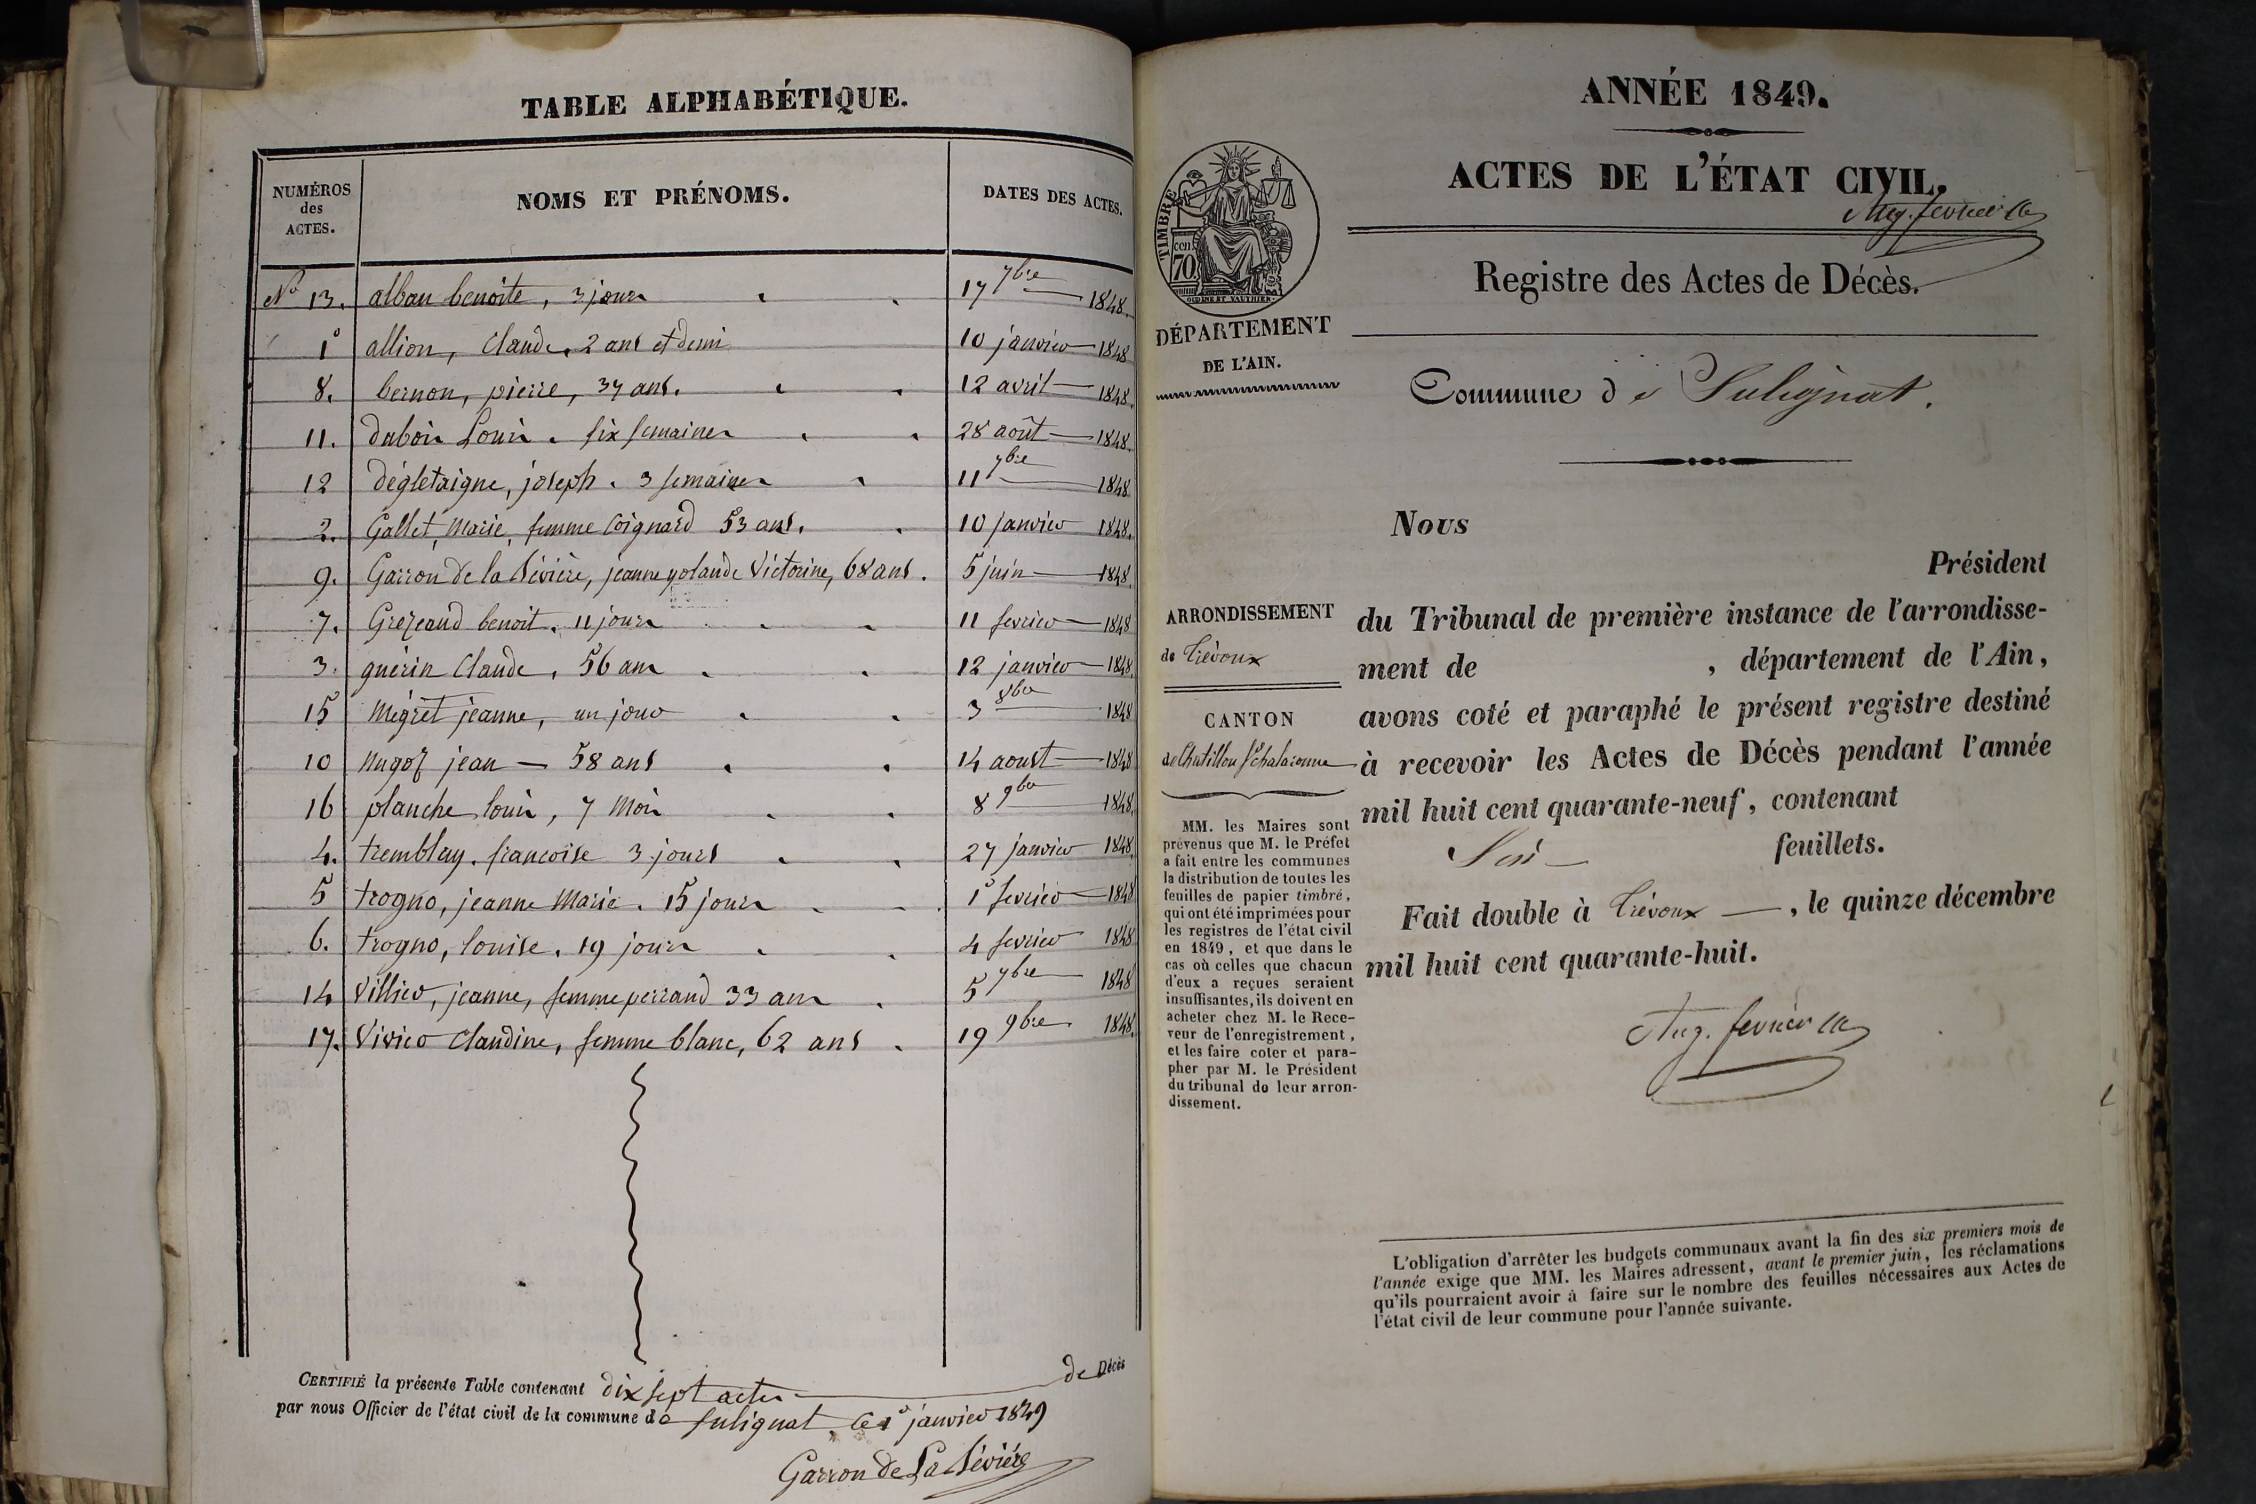 TABLE ALPHABÉTIQUE.
NUMÉROS des ACTES. NOMS ET PRÉNOMS. DATES DES ACTES.
N° 13. alban benoite, 3 jours 17 7bre 1848.
1° allion, Claude, 2 ans et demi 10 janvier 1848
8. bernon, pierre, 37 ans. 12 avril 1848.
11. dubois Louis. six semaines 28 août 1848.
12 dégletaigne, joseph. 3 semaines 11 7bre 1848.
2. Gallet, Marie, femme Coignard 53 ans. 10 janvier 1848.
9. Garron de la Bévière, jeanne yolande Victorine, 68 ans. 5 juin 1848.
7. Grézeaud benoit. 11 jours 11 fevrier 1848
3. guérin Claude, 56 ans 12 janvier 1848.
15 Mégret jeanne, un jour 3 8bre 1848
10 Nugoz jean — 58 ans 14 aoust 1848
16 planche louis, 7 Mois 8 9bre 1848.
4. tremblay. francoise 3 jours 27 janvier 1848.
5 trogno, jeanne Marie. 15 jours 1° fevrier 1848
6. trogno, louise. 19 jours 4 fevrier 1848
14 Villier, jeanne, femme perrand 33 ans 5 7bre 1848
17. Vivier Claudine, femme blanc, 62 ans 19 9bre 1848.
CERTIFIÉ la présente Table contenant dix sept actes de Décès
par nous Officier de l'état civil de la commune de Sulignat, le 1° janvier 1849
Garron de La Bévière
ANNÉE 1849.
ACTES DE L'ÉTAT CIVIL.
Aug. fevrier
Registre des Actes de Décès.
TIMBRE
70 cen.
OUDINE ET VAUTHIER
DÉPARTEMENT
DE L'AIN.
Commune de Sulignat.
Nous
Président
du Tribunal de première instance de l'arrondisse-
ment de , département de l'Ain,
avons coté et paraphé le présent registre destiné
à recevoir les Actes de Décès pendant l'année
mil huit cent quarante-neuf, contenant
feuillets.
Fait double à Trévoux —, le quinze décembre
mil huit cent quarante-huit.
Aug. fevrier
ARRONDISSEMENT
de Trévoux
CANTON
de Chatillon s/ chalaronne
MM. les Maires sont
prévenus que M. le Préfet
a fait entre les communes
la distribution de toutes les
feuilles de papier timbré,
qui ont été imprimées pour
les registres de l'état civil
en 1849, et que dans le
cas où celles que chacun
d'eux a reçues seraient
insuffisantes, ils doivent en
acheter chez M. le Rece-
veur de l'enregistrement,
et les faire coter et para-
pher par M. le Président
du tribunal de leur arron-
dissement.
L'obligation d'arrêter les budgets communaux avant la fin des six premiers mois de
l'année exige que MM. les Maires adressent, avant le premier juin, les réclamations
qu'ils pourraient avoir à faire sur le nombre des feuilles nécessaires aux Actes de
l'état civil de leur commune pour l'année suivante.